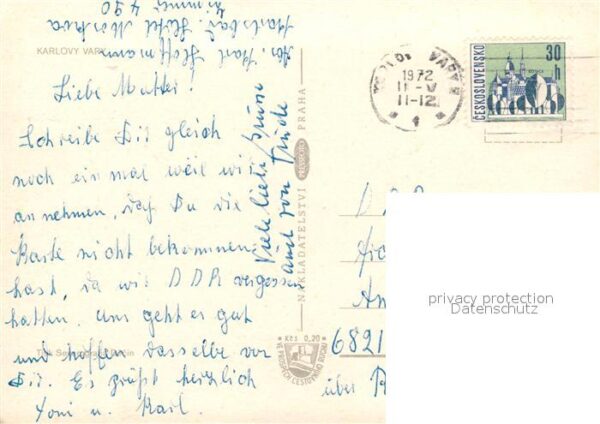 KARLOVY VARY
Abs. Karl Hoffmann
Karlsbad. Hotel Moskva
Zimmer 490
Liebe Mutter!
Schreibe Dir gleich
noch einmal weil wir
annehmen, daß Du die
Karte nicht bekommen
hast, da wir DDR vergessen
hatten. Uns geht es gut
und hoffen dasselbe von
Dir. Es grüßt herzlich
Toni u. Karl.
Viele liebe Grüsse
auch von Trude
NAKLADATELSTVÍ PRESSFOTO PRAHA
Kčs 0,20
VE PROSPĚCH CESTOVNÍHO RUCHU
KARLOVY VARY 1
1972
11-V
11-12
ČESKOSLOVENSKO
30 h
DDR
6821
über R
privacy protection
Datenschutz